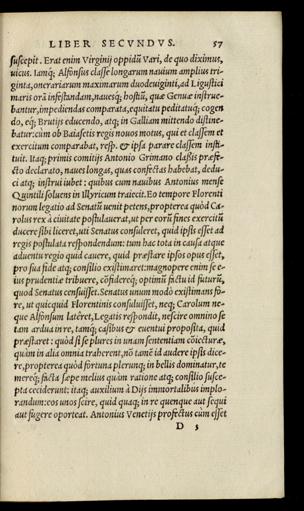 LIBER SECVNDVS. 57
suscepit. Erat enim Virginij oppidũ Vari, de quo diximus,
uicus. tamq; Alfonsus classe longarum nauium amplius tri-
ginta, onerariarum maximarum duodeuiginti, ad Ligustici
maris orã infestandam, nauesq; hostiũ, quæ Genuæ instrue-
bantur, impediendas comparata, equitatu peditatuq; cogen
do, eq; Brutijs educendo, atq; in Galliam mittendo distine-
batur: cùm ob Baiasetis regis nouos motus, qui et classem et
exercitum comparabat, resp. & ipsa parare classem insti-
tuit. Itaq; primis comitijs Antonio Grimano classis præfe-
cto declarato, naues longas, quas confectas habebat, dedu-
ci atq; instrui iubet: quibus cum nauibus Antonius mense
Quintili soluens in Illyricum traiecit. Eo tempore Florenti
norum legatio ad Senatũ uenit petens, propterea quòd Ca-
rolus rex à ciuitate postulauerat, ut per eorũ fines exercitũ
ducere sibi liceret, uti Senatus consuleret, quid ipsis esset ad
regis postulata respondendum: tum hac tota in causa atque
aduentu regio quid cauere, quid præstare ipsos opus esset,
pro sua fide atq; consilio existimaret: magnopere enim se e-
ius prudentiæ tribuere, cõfidereq; optimũ factu id futurũ,
quod Senatus censuisset. Senatus unum modò existimans fo-
re, ut quicquid Florentinis consuluisset, neq; Carolum ne-
que Alfonsum lateret, Legatis respõdit, nescire omnino se
tam ardua in re, tamq; casibus & euentui proposita, quid
præstaret: quòd si se plures in unam sententiam cõiecturæ,
quàm in alia omnia traherent, nõ tamẽ id audere ipsis dice-
re, propterea quòd fortuna plerunq; in bellis dominatur, te
mereq; facta sæpe melius quàm ratione atq; consilio susce-
pta ceciderunt: itaq; auxilium à Dijs immortalibus implo-
randum: eos unos scire, quid quaq; in re quenque aut sequi
aut fugere oporteat. Antonius Venetijs profectus cùm esset
D 3